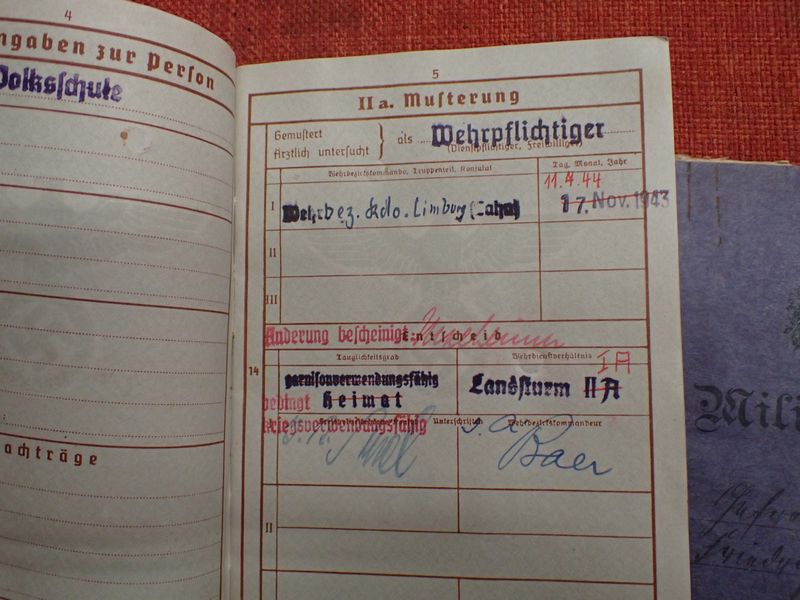 4
ngaben zur Person
Volksschule
achträge
5
IIa. Musterung
Gemustert
Ärztlich untersucht } als Wehrpflichtiger
(Dienstpflichtiger, Freiwilliger)
Wehrbezirkskommando, Truppenteil, Konsulat
Tag, Monat, Jahr
11.4.44
I
Wehrbez. Kdo. Limburg (Lahn)
17. Nov. 1943
II
III
Änderung bescheinigt
Entscheid
14
Tauglichkeitsgrad
Wehrdienstverhältnis
I A
garnisonverwendungsfähig
Landsturm II A
bedingt Heimat
kriegsverwendungsfähig
Unterschriften
Wehrbezirkskommandeur
Baer
II
Mili